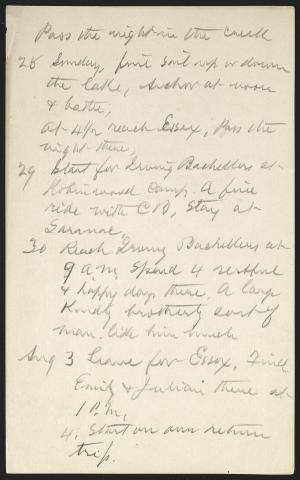 Pass the night in the creek
28 Sunday, fine sail up or down
the lake, Anchor at noon
& bathe,
at 4 1/2 reach Essex, Pass the
night there,
29 Start for Irving Bachellers at
Robinwood Camp. A fine
ride with CB, Stay at
Saranac,
30 Reach Irving Bachellers at
9 a.m, Spend 4 restful
& happy days there. A large
kindly brotherly sort of
man. like him much
Aug 3 leave for Essex, Find
Emily & Julian there at
1 P.M,
4. Start on our return
trip.